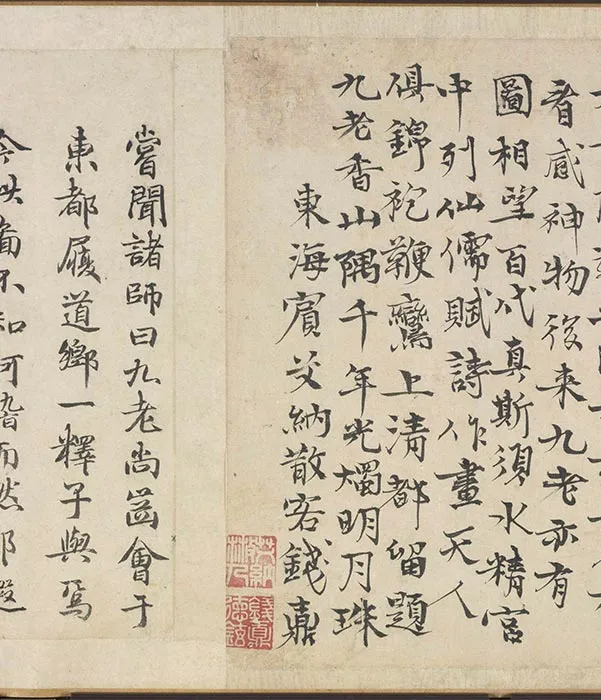 感神物後來九老亦有
圖相望百代真斯須水精宮
中列仙儒賦詩作畫天人
俱錦袍鞭鸞上清都留題
九老香山隅千年光燭明月珠
東海賓艾納散客錢鼎
錢鼎德鉉
嘗聞諸師曰九老尚齒會于
東都履道鄉一釋子與焉
不知而然耶